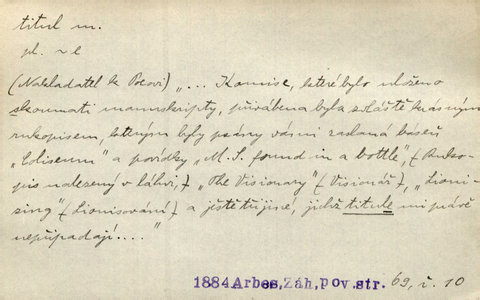 titul m.
pl. ~ e
(Nakladatel k Poeovi) „... Komise, které bylo uloženo
skoumati manuskripty, přivábena byla zvláště krásným
rukopisem, kterým byly psány vámi zaslaná báseň
„Coliseum" a povídky „M.S. found in a bottle", (Ruko-
pis nalezený v láhvi,) „The Visionary" (Visionář), „Lioni-
zing" (Lionisování) a ještě tři jiné, jichž titule mi právě
nepřipadají...."
1884 Arbes, Záh. pov. str. 69, ř. 10